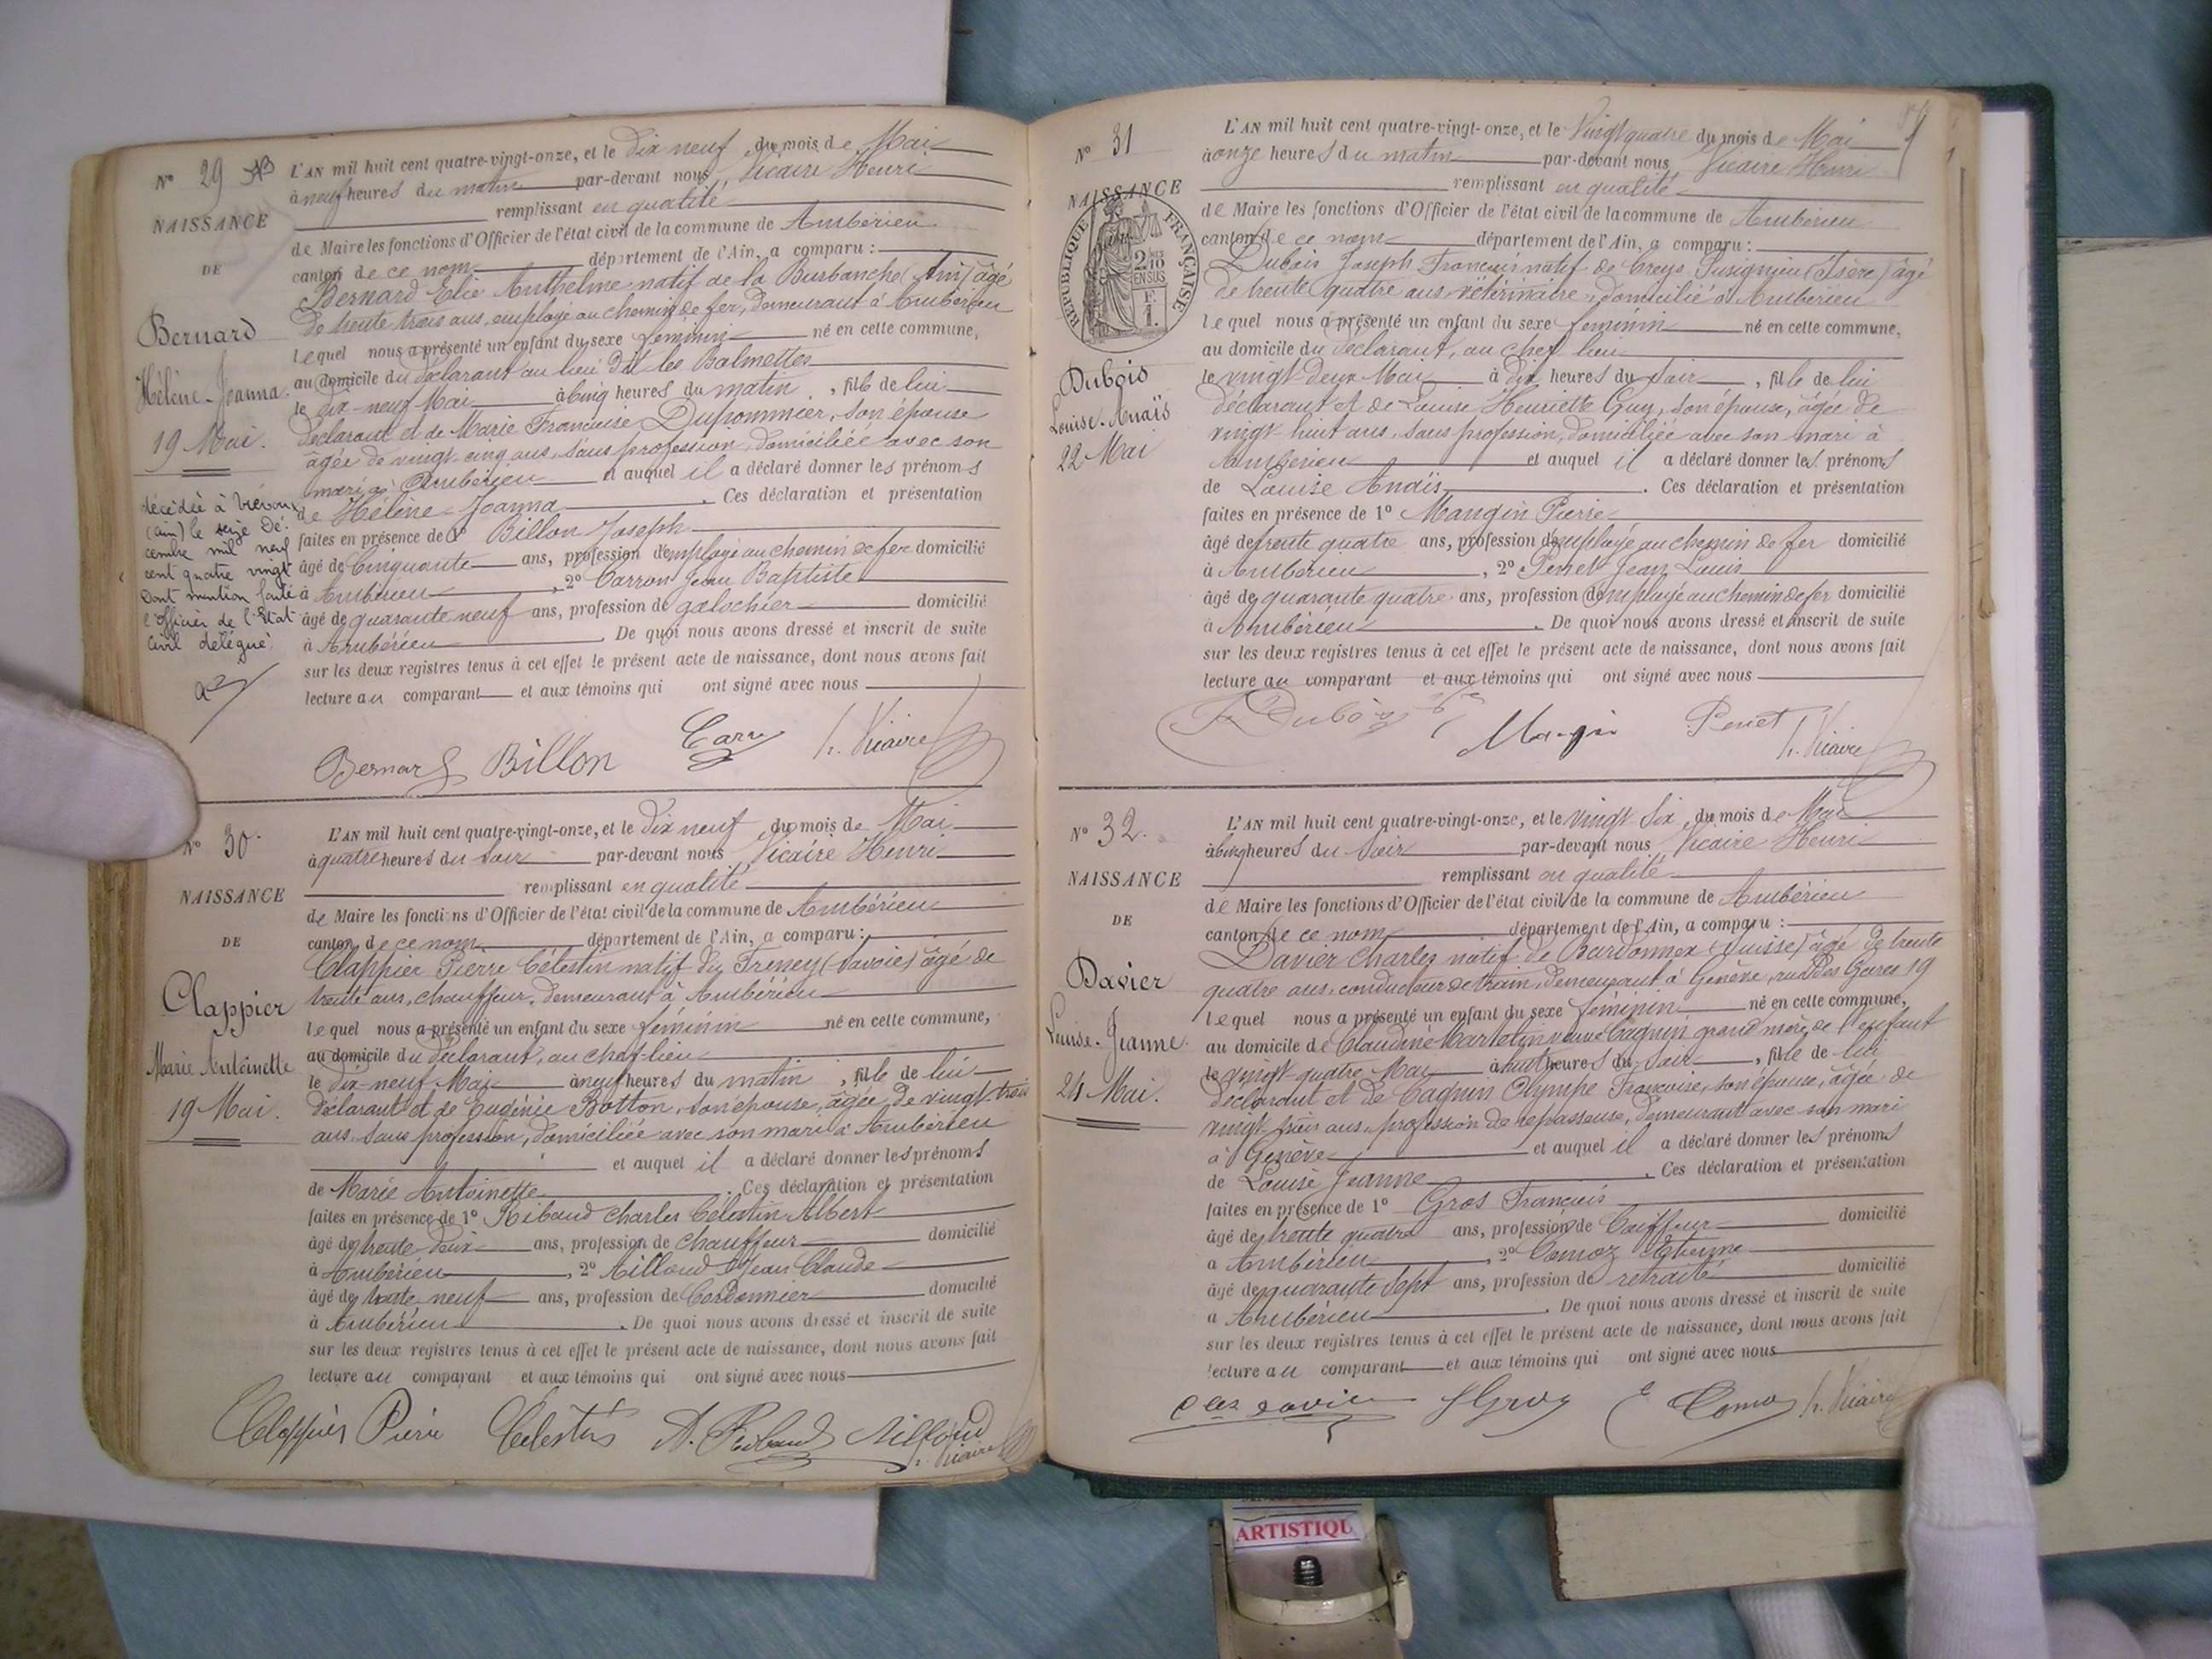 N° 29
NAISSANCE
DE
Bernard
Hélène-Jeanna
19 Mai.
décédée à Trévoux
(ain) le seize Dé-
cembre mil neuf
cent quatre vingt
Dont mention faite
l'officier de l'Etat
Civil délégué
L'AN mil huit cent quatre-vingt-onze, et le Dix neuf du mois de Mai
à neuf heures du matin par-devant nous Vicaire Henri
remplissant en qualité
de Maire les fonctions d'Officier de l'état civil de la commune de Ambérieu
canton de ce nom département de l'Ain, a comparu :
Bernard Elie Anthelme natif de la Burbanche (Ain) âgé
de trente trois ans, employé au chemin de fer, demeurant à Ambérieu
lequel nous a présenté un enfant du sexe féminin né en cette commune,
au domicile du déclarant au lieu dit les Balmettes
le dix-neuf Mai à cinq heures du matin, fille de lui
déclarant et de Marie Françoise Dupommier, son épouse
âgée de vingt-cinq ans, sans profession, domiciliée avec son
mari à Ambérieu et auquel il a déclaré donner les prénoms
de Hélène-Jeanna. Ces déclaration et présentation
faites en présence de 1° Billon Joseph
âgé de Cinquante ans, profession d'employé au chemin de fer domicilié
à Ambérieu, 2° Carron Jean Baptiste
âgé de quarante neuf ans, profession de galochier domicilié
à Ambérieu. De quoi nous avons dressé et inscrit de suite
sur les deux registres tenus à cet effet le présent acte de naissance, dont nous avons fait
lecture au comparant et aux témoins qui ont signé avec nous
Bernard Billon Carron h. Vicaire
N° 30.
NAISSANCE
DE
Clappier
Marie Antoinette
19 Mai.
L'AN mil huit cent quatre-vingt-onze, et le Dix neuf du mois de Mai
à quatre heures du soir par-devant nous Vicaire Henri
remplissant en qualité
de Maire les fonctions d'Officier de l'état civil de la commune de Ambérieu
canton de ce nom département de l'Ain, a comparu :
Clappier Pierre Célestin natif du Freney (Savoie) âgé de
trente ans, chauffeur, demeurant à Ambérieu
lequel nous a présenté un enfant du sexe féminin né en cette commune,
au domicile du déclarant, au chef-lieu
le dix-neuf Mai à neuf heures du matin, fille de lui
déclarant et de Eugénie Botton, son épouse, âgée de vingt-trois
ans, sans profession, domiciliée avec son mari à Ambérieu
et auquel il a déclaré donner les prénoms
de Marie Antoinette. Ces déclaration et présentation
faites en présence de 1° Ribaud Charles Célestin Albert
âgé de trente-deux ans, profession de chauffeur domicilié
à Ambérieu, 2° Ailloud Jean Claude
âgé de trente-neuf ans, profession de Cordonnier domicilié
à Ambérieu. De quoi nous avons dressé et inscrit de suite
sur les deux registres tenus à cet effet le présent acte de naissance, dont nous avons fait
lecture au comparant et aux témoins qui ont signé avec nous
Clappier Pierre Célestin A. Ribaud Ailloud h. Vicaire
N° 31
NAISSANCE
RÉPUBLIQUE FRANÇAISE
2/10 EN SUS
F. 1.
Dubois
Louise-Anaïs
22 Mai
L'AN mil huit cent quatre-vingt-onze, et le Vingt quatre du mois de Mai
à onze heures du matin par-devant nous Vicaire Henri
remplissant en qualité
de Maire les fonctions d'Officier de l'état civil de la commune de Ambérieu
canton de ce nom département de l'Ain, a comparu :
Dubois Joseph François natif de Creys Pusignieu (Isère) âgé
de trente quatre ans, vétérinaire, domicilié à Ambérieu
lequel nous a présenté un enfant du sexe féminin né en cette commune,
au domicile du déclarant, au chef lieu
le vingt-deux Mai à dix heures du soir, fille de lui
déclarant et de Louise Henriette Guy, son épouse, âgée de
vingt-huit ans, sans profession, domiciliée avec son mari à
Ambérieu et auquel il a déclaré donner les prénoms
de Louise Anaïs. Ces déclaration et présentation
faites en présence de 1° Mangin Pierre
âgé de trente quatre ans, profession d'employé au chemin de fer domicilié
à Ambérieu, 2° Perret Jean Louis
âgé de quarante quatre ans, profession d'employé au chemin de fer domicilié
à Ambérieu. De quoi nous avons dressé et inscrit de suite
sur les deux registres tenus à cet effet le présent acte de naissance, dont nous avons fait
lecture au comparant et aux témoins qui ont signé avec nous
Dubois Mangin Perret h. Vicaire
N° 32.
NAISSANCE
DE
Davier
Louise-Jeanne.
24 Mai.
L'AN mil huit cent quatre-vingt-onze, et le Vingt Six du mois de Mai
à cinq heures du soir par-devant nous Vicaire Henri
remplissant en qualité
de Maire les fonctions d'Officier de l'état civil de la commune de Ambérieu
canton de ce nom département de l'Ain, a comparu :
Davier Charles natif de Bardonnex (Suisse) âgé de trente
quatre ans, conducteur de train, demeurant à Genève, rue des Gares 19
lequel nous a présenté un enfant du sexe féminin né en cette commune,
au domicile de Claudine Martelin veuve Cagnin grand mère de l'enfant
le vingt quatre Mai à huit heures du soir, fille de lui
déclarant et de Cagnin Olympe Françoise, son épouse, âgée de
vingt-trois ans, profession de repasseuse, demeurant avec son mari
à Genève et auquel il a déclaré donner les prénoms
de Louise Jeanne. Ces déclaration et présentation
faites en présence de 1° Gros François
âgé de trente quatre ans, profession de Coiffeur domicilié
à Ambérieu, 2° Comoz Etienne
âgé de quarante Sept ans, profession de retraité domicilié
à Ambérieu. De quoi nous avons dressé et inscrit de suite
sur les deux registres tenus à cet effet le présent acte de naissance, dont nous avons fait
lecture au comparant et aux témoins qui ont signé avec nous
Ches Davier F Gros E Comoz h. Vicaire
ARTISTIQU